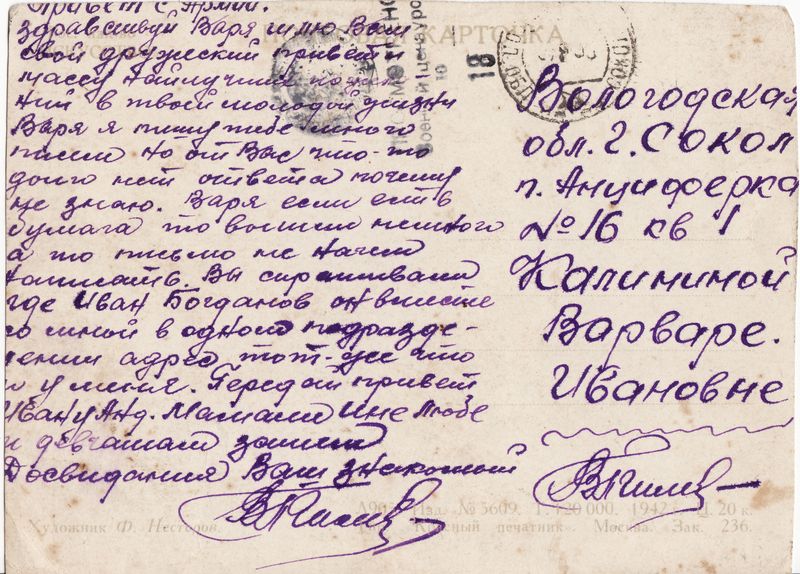 Привет с Армии.
Здравствуй Варя шлю Вам
свой дружеский привет и
массу наилучших пожела
ний в твоей молодой жизни
Варя я пишу тебе много
писем но от Вас что-то
долго нет ответа почему
не знаю. Варя если есть
бумага то вышли немного
а то письмо не начем
написать. Вы спрашивали
где Иван Богданов он вместе
со мной в одном подразде-
лении адрес тот-же что
и у меня. Передай привет
Ивану Анд. Мамаши Ине Любе
и девчатам
Досвидания Ваш знакомый
ПОЧТОВАЯ КАРТОЧКА
ПРОСМОТРЕНО
Военной Цензурой
18
СОКОЛ
Вологодская
обл. г. Сокол
п. Анциферка
№ 16 кв 1
Калининой
Варваре.
Ивановне
Художник Ф. Нестеров.
Изд. № 3609. Т. 120 000. 1942 г. Ц. 20 к.
Красный печатник. Москва. Зак. 236.